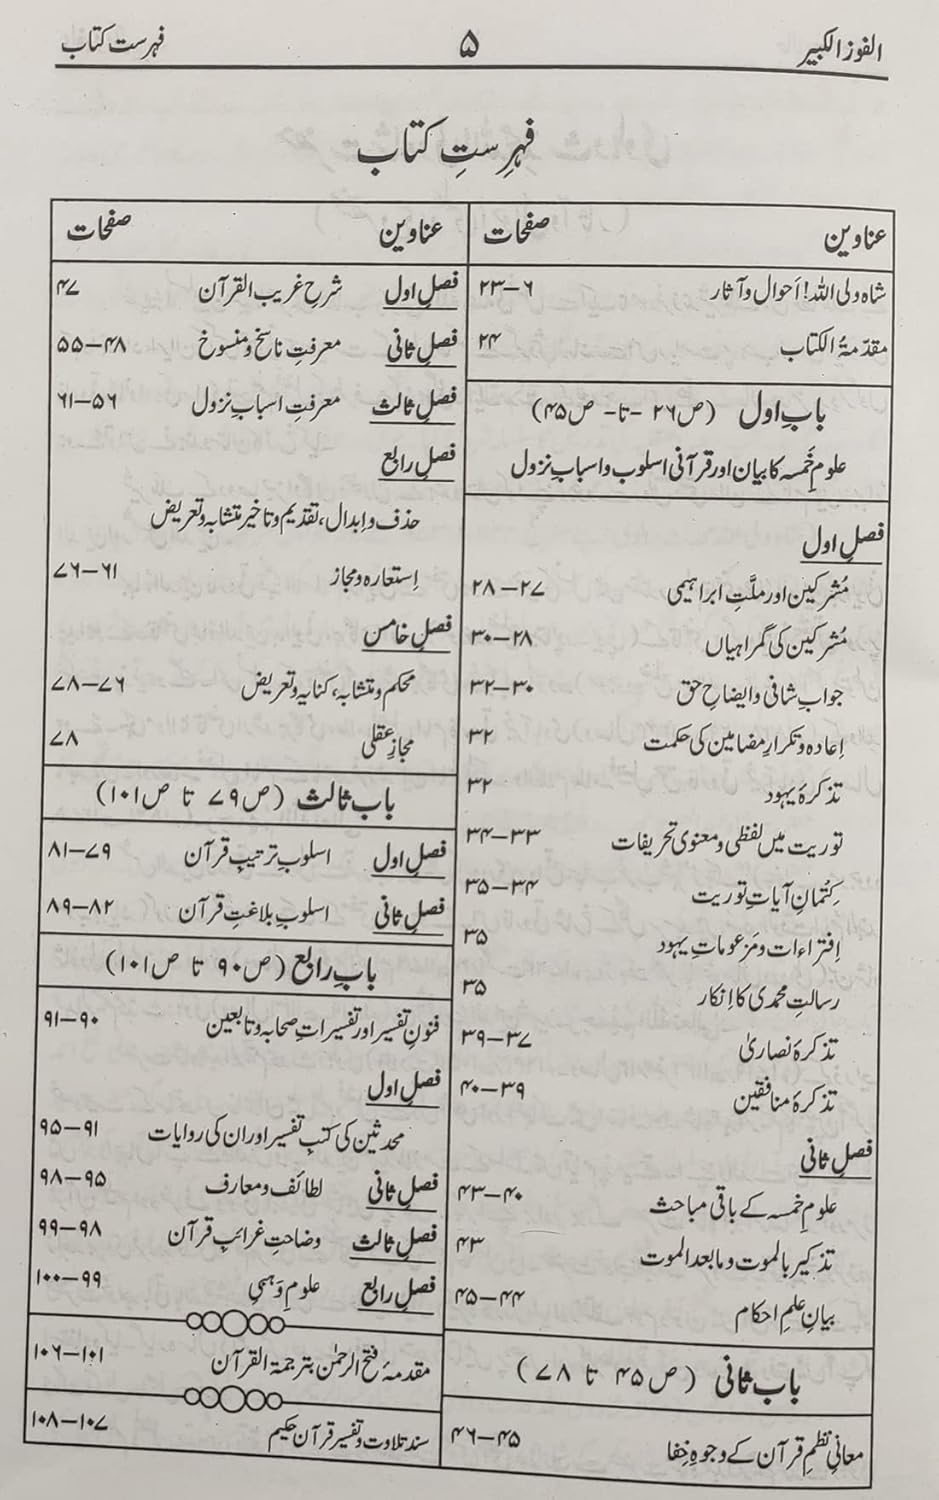 الفوز الکبیر ۵ فہرست کتاب
فہرستِ کتاب
عناوین صفحات
شاہ ولی اللہ! اَحوال و آثار ۶—۲۳
مقدّمۃ الکتاب ۲۴
بابِ اول (ص۲۶ -تا- ص۴۵)
علومِ خَمسہ کا بیان اور قرآنی اسلوب و اسبابِ نزول
فصل اول
مُشرکین اور ملَّتِ ابراہیمی ۲۷—۲۸
مُشرکین کی گمراہیاں ۲۸—۳۰
جواب شافی و ایضاحِ حق ۳۰—۳۲
اِعادہ و تکرارِ مضامین کی حکمت ۳۲
تذکرۂ یہود ۳۲
توریت میں لفظی و معنوی تحریفات ۳۳—۳۴
کِتْمانِ آیاتِ توریت ۳۴—۳۵
اِفتراءات و مَزعوماتِ یہود ۳۵
رسالتِ محمدی کا اِنکار ۳۵
تذکرۂ نصاریٰ ۳۷—۳۹
تذکرۂ منافقین ۳۹—۴۰
فصل ثانی
علومِ خمسہ کے باقی مباحث ۴۰—۴۳
تذکیر بالموت و مابعد الموت ۴۳
بیانِ علمِ احکام ۴۴—۴۵
باب ثانی (ص۴۵ تا ۷۸)
معانیٔ نَظمِ قرآن کے وجوہِ خِفا ۴۵—۴۶
عناوین صفحات
فصل اول شرحِ غریب القرآن ۴۷
فصل ثانی معرفتِ ناسخ و منسوخ ۴۸—۵۵
فصل ثالث معرفت اسبابِ نزول ۵۶—۶۱
فصل رابع
حذف و اِبدال، تقدیم و تاخیر متشابہ و تعریض
اِستعارہ و مجاز ۶۱—۷۶
فصل خامس
محکم و متشابہ، کنایہ و تعریض ۷۶—۷۸
مجازِ عقلی ۷۸
باب ثالث (ص۷۹ تا ص۱۰۱)
فصل اول اسلوبِ ترتیبِ قرآن ۷۹—۸۱
فصل ثانی اسلوبِ بلاغتِ قرآن ۸۲—۸۹
بابِ رابع (ص۹۰ تا ص۱۰۱)
فنونِ تفسیر اور تفسیراتِ صحابہ و تابعین ۹۰—۹۱
فصل اول
محدثین کی کتبِ تفسیر اور ان کی روایات ۹۱—۹۵
فصل ثانی لطائف و معارف ۹۵—۹۸
فصل ثالث وضاحتِ غرائبِ قرآن ۹۸—۹۹
فصل رابع علومِ وَہبی ۹۹—۱۰۰
مقدمۂ فتح الرحمٰن بترجمۃ القرآن ۱۰۱—۱۰۶
سند تلاوت و تفسیر قرآن حکیم ۱۰۷—۱۰۸